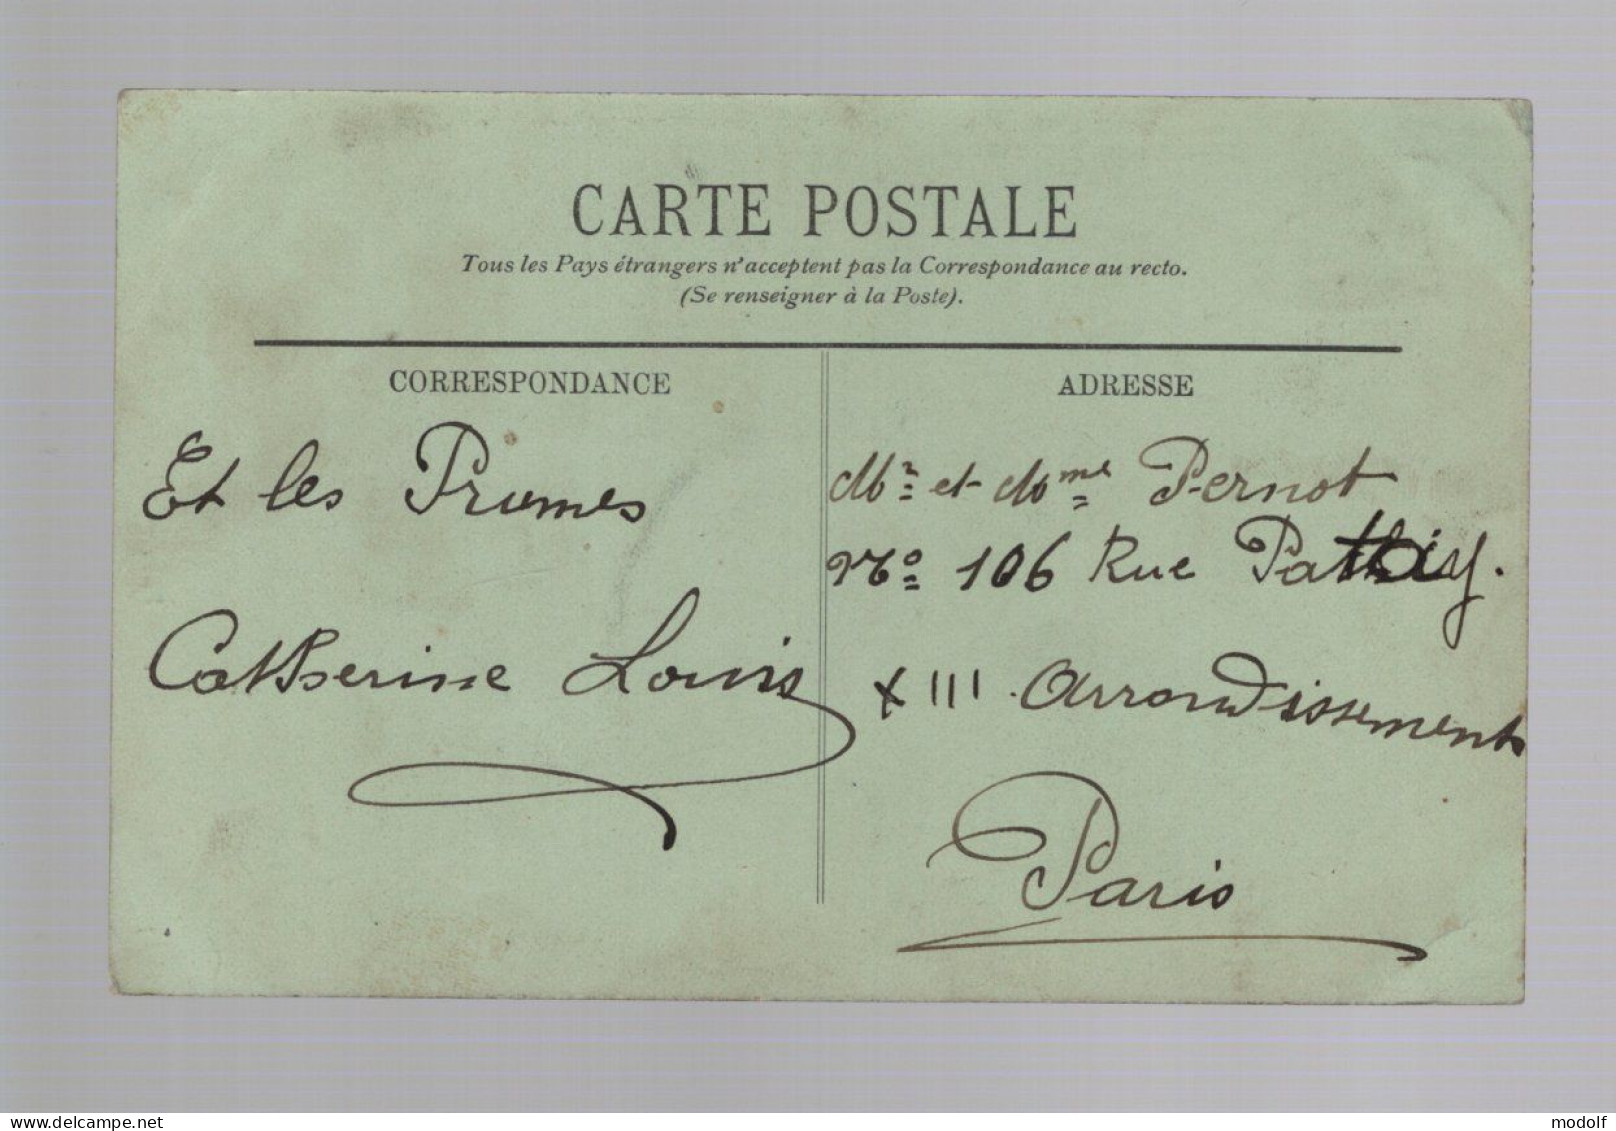 CARTE POSTALE
Tous les Pays étrangers n'acceptent pas la Correspondance au recto.
(Se renseigner à la Poste).
CORRESPONDANCE
Et les Prumes
Catherine Louis
ADRESSE
Mr et Mme Pernot
No 106 Rue Pathay.
XIII Arrondissement
Paris
the-best-of-collections.delcampe.net
modolf